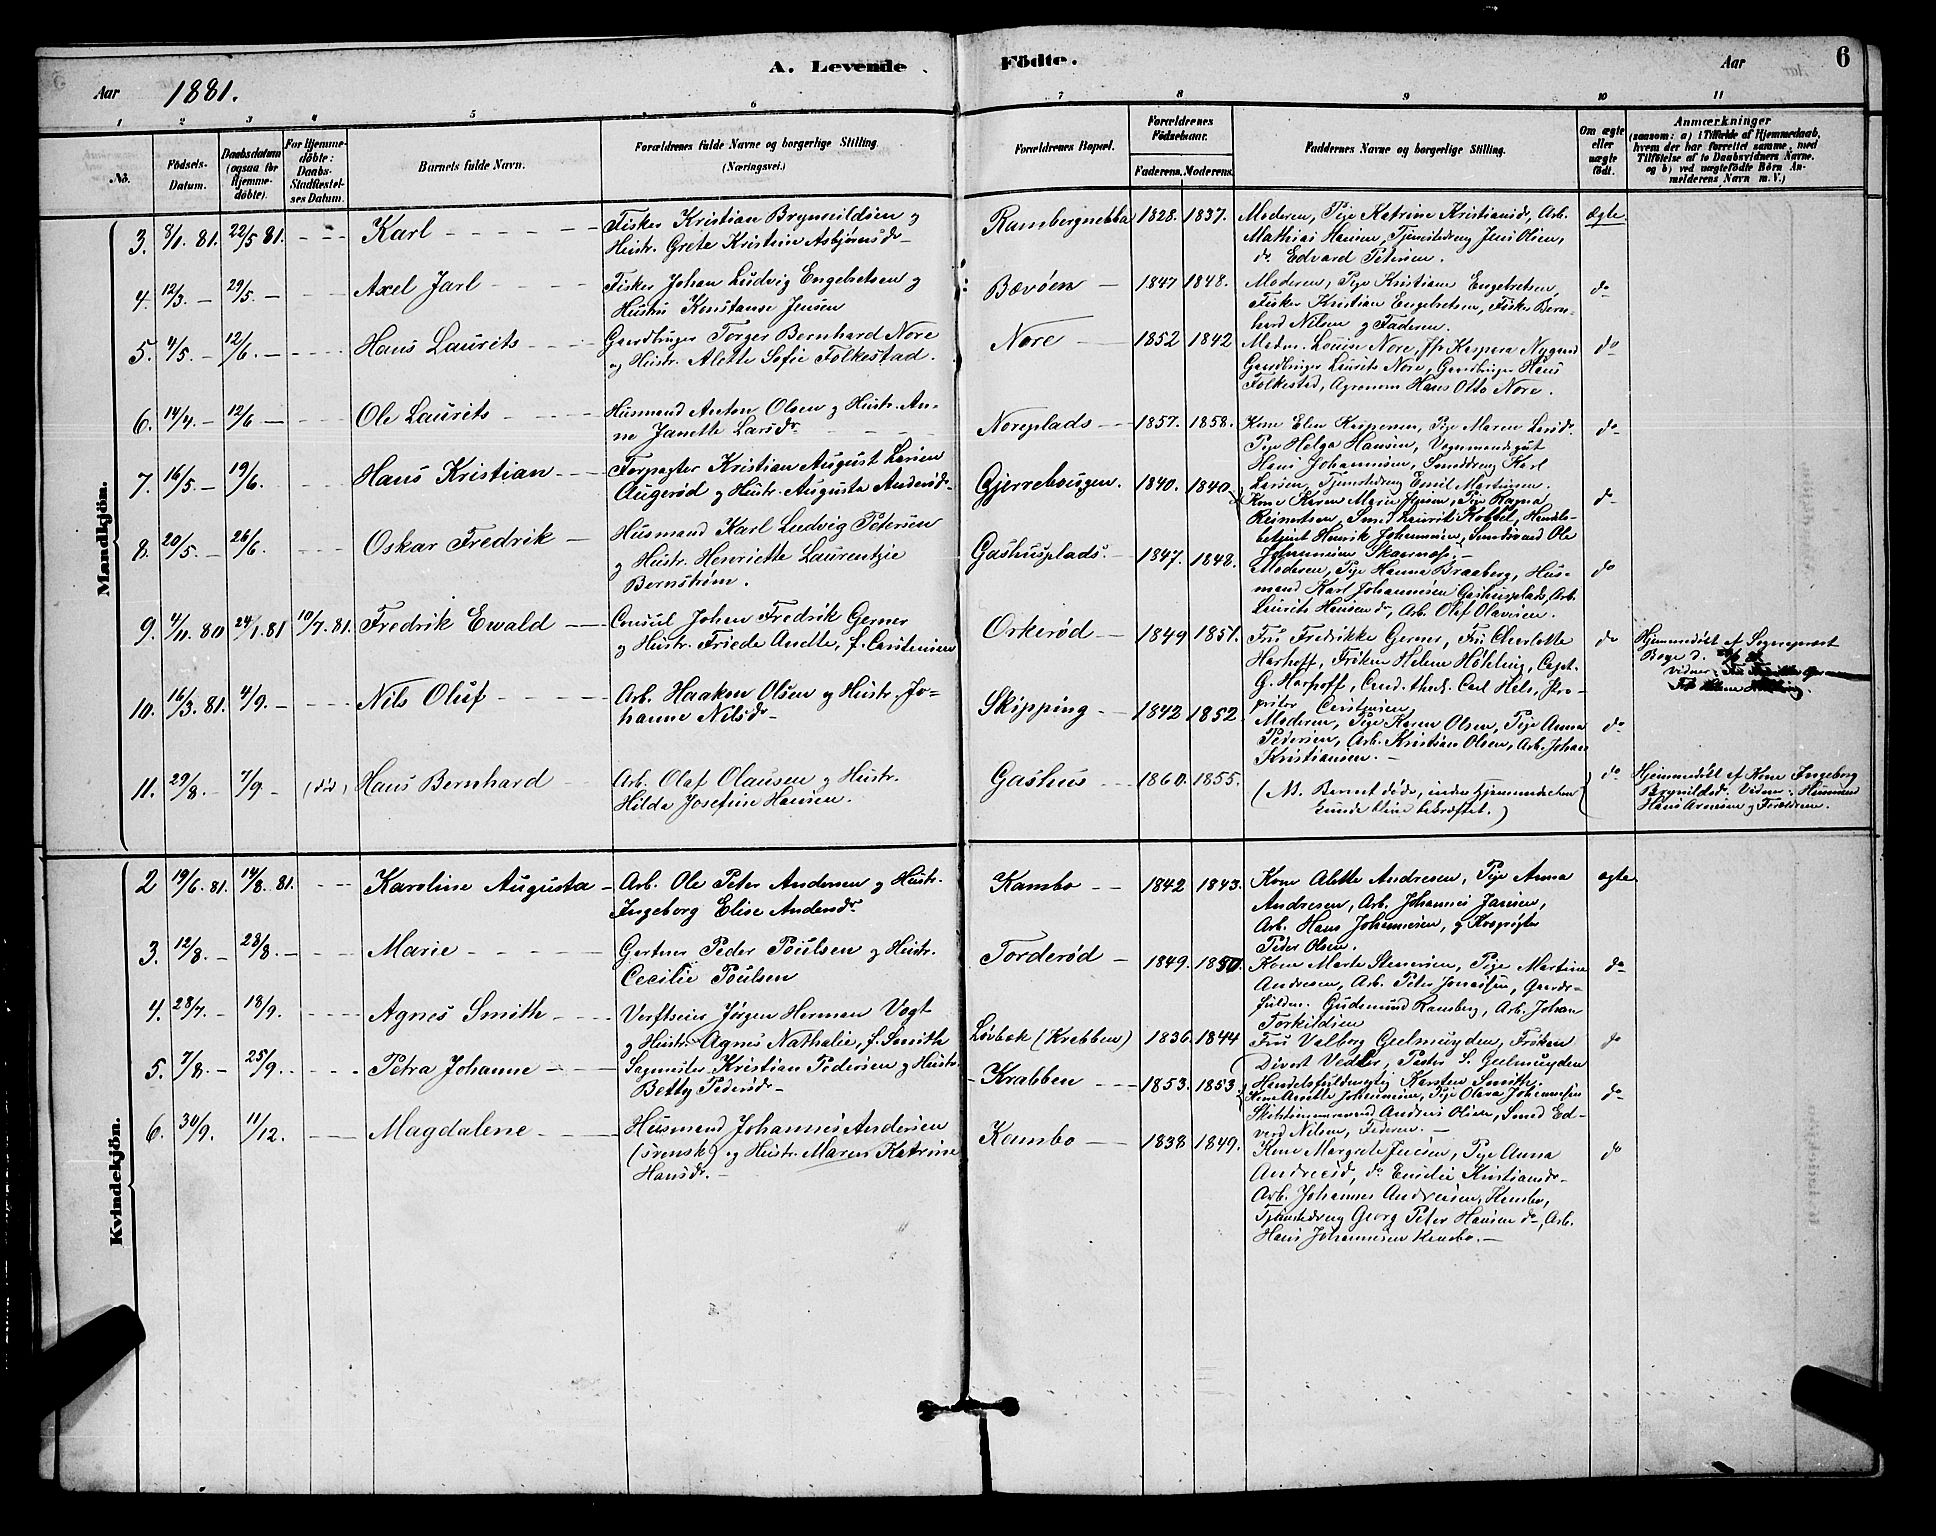 A. Levende Födte.
Aar 1881.
Aar 6
1 2 3 4 5 6 7 8 9 10 11
No.
Födsels-Datum.
Daabsdatum (ogsaa for Hjemmedöbte).
For Hjemmedöbte: Daabs-Stadfæstelses Datum.
Barnets fulde Navn.
Forældrenes fulde Navne og borgerlige Stilling. (Næringsvei.)
Forældrenes Bopæl.
Forældrenes Födselsaar.
Faderens. Moderens.
Faddernes Navne og borgerlige Stilling.
Om ægte eller uægte födt.
Anmærkninger
(saasom: a) i Tilfælde af Hjemmedaab,
hvem der har forrettet samme, med
Tilföielse af to Daabsvidners Navne,
og b) ved uægtefödte Börn An-
melderens Navn m. V.)
Mandkjön.
3. 8/1. 81. 22/5 81. Karl
Fisker Kristian Brynildsen og
Hustr. Grete Kristine Asbjørnsdr
Rambergnebba 1828. 1837.
Moderen, Pige Katrine Kristiansd, Arb.
Mathias Hansen, Tjenestedreng Jens Olsen,
do Edvard Petersen.
Ægte
4. 12/3. 29/5. Axel Jarl
Fisker Johan Ludvig Engebretsen og
Hustru Konstanse Jensen
Bævöen 1847 1848.
Moderen, Pige Kristiane Engebretsen,
Fisker Kristian Engebretsen, Fisker Bern-
hard Nilsen og Faderen.
do
5. 4/5. 12/6. Hans Laurits
Gaardbruger Torger Bernhard Nore
og Hustr. Alette Sofie Folkestad.
Nore 1852 1842
Moderen Louise Nore, Kaspera Nygaard
Gaardbruger Laurits Nore, Gaardbruger Hans
Folkestad, Agronom Hans Otto Nore.
do
6. 14/4. 12/6 Ole Laurits
Husmand Anton Olsen og Hustr. An-
ne Janette Larsdr
Noreplads 1857. 1858.
Kone Elen Kaspersen, Pige Maren Larsdr.
Pige Helga Hansen,
Hans Johannesen, Smeddreng Karl
Larsen, Tjenestedreng Emil Martinsen.
do
7. 16/5. 19/6. Hans Kristian
Forpagter Kristian August Larsen
Augerød og Hustr. Augusta Andersdr
Gjerrebougen. 1840. 1840
Kone Karen Marie Hansen, Pige Ragna
Reinertsen, Smed Laurits Kobbel, Handels-
betjent Henrik Johannesen, Smedsvend Ole
Johannesen Skaarnes.
do
8. 20/5. 26/6. Oskar Fredrik
Husmand Karl Ludvig Petersen
og Hustr. Henriette Laurentzie
Bernström.
Gashusplads. 1847. 1848.
Moderen, Pige Hanna Braaberg, Hus-
mand Karl Johannesen Gashusplads, Arb.
Laurits Hansen do, Arb. Olaf Olavesen.
do
9. 4/11. 80 24/1. 81 10/7. 81. Fredrik Ewald
Consul Johan Fredrik Gerner
og Hustr. Friede Anette, f. Carstensen
Orkerød 1849 1851.
Fru Fredrikke Gerner, Fru Charlotte
Harhoff, Frøken Helene Höhling, Capt.
G. Harhoff, Cand. theol. Carl Hels, Pro-
pritær Carstensen
do
Hjemmedöbt af Sogneprest
Boye d.
Vidner: Fru
10. 16/3. 81. 4/9. Nils Oluf
Arb. Haaken Olsen og Hustr. Jo-
hanne Nilsdr
Skipping 1842 1852
Moderen, Pige Karen Olsen, Pige Anna
Pedersen, Arb. Kristian Olsen, Arb. Johan
Kristiansen.
do
11. 29/8. 7/9. (död) Hans Bernhard
Arb. Olaf Olausen og Hustr.
Hilda Josefine Hansen.
Gashus 1860. 1855.
(N. Barnet døde, inden Hjemmedaaben
kunde blive bekræftet.)
do
Hjemmedöbt af Kone Ingeborg
Brynildsd. Vidner: Husmand
Hans Arnesen og Forældrene.
Kvindekjön.
2 19/6. 81. 14/8. 81. Karoline Augusta
Arb. Ole Peter Andersen og Hustr.
Ingeborg Elise Andersdr.
Kambo 1842 1843.
Kone Alette Andresen, Pige Anna
Andresen, Arb. Johannes Jansen,
Arb. Hans Johannesen, og
Peder Olsen.
ægte
3. 12/8. 28/8. Marie
Gartner Peder Poulsen og Hustr.
Cecilie Poulsen
Torderød 1849. 1850.
Kone Marte Stenersen, Pige Martine
Andresen, Arb. Peter Jonassen, Gaards-
fuldm. Gudmund Ramberg, Arb. Johan
Torkildsen
do
4. 28/7. 18/9. Agnes Smith
Verftseier Jörgen Herman Vogt
og Hustr. Agnes Nathalie, f. Smith
Løvbak (Krabben) 1836. 1844
Fru Valborg Gulmuyden, Frøken
Divert Vedeler, Pastor S. Gulmuyden
Handelsfuldmægtig Karsten Smith.
do
5. 7/8. 25/9. Petra Johanne
Sagmester Kristian Pedersen og Hustr.
Betty Pedersdr
Krabben 1853. 1853
Kone Anette Johannesen, Pige Olava Johannesen
Skibstömmermand Anders Olsen, Smed Ed-
vard Nilsen, Faderen.
do
6. 30/9. 11/12. Magdalene
Husmand Johannes Andersen
(svensk) og Hustr. Maren Katrine
Hansdr.
Kambo 1838 1849.
Kone Margrete Jensen, Pige Anna
Andreasd, do Emilie Kristiansdr
Arb. Johannes Andresen, Kambo,
Tjenestedreng Georg Peter Hansen do, Arb.
Hans Johannesen Kambo.
do